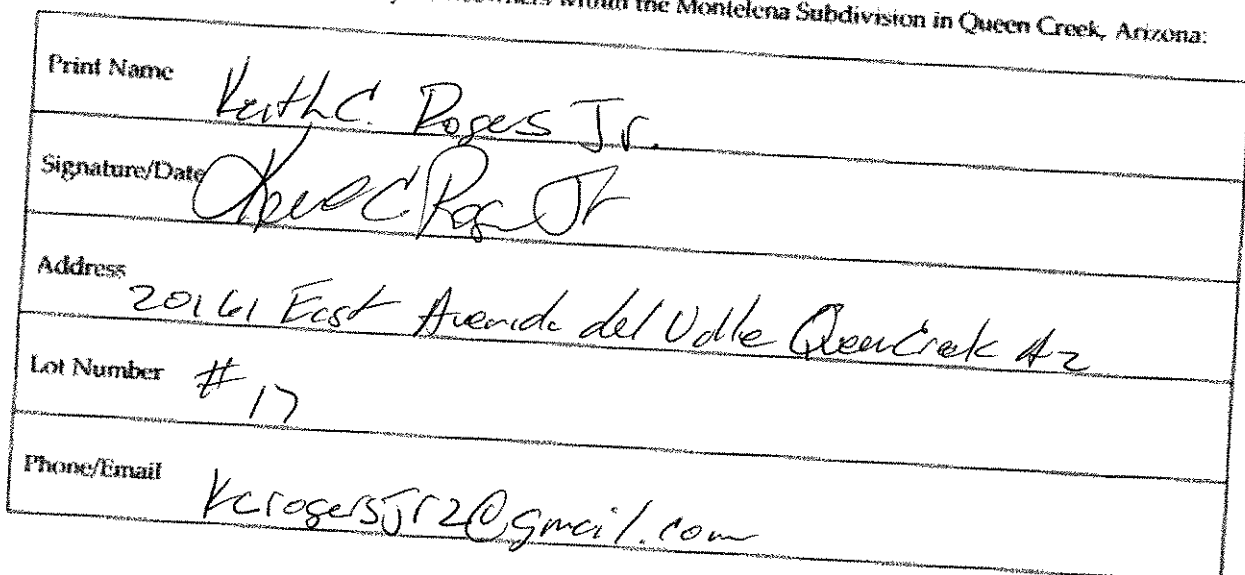 within the Montelena Subdivision in Queen Creek, Arizona:
Print Name Keith C. Rogers Jr.
Signature/Date
Address 20161 East Avenida del Valle Queen Creek Az
Lot Number #17
Phone/Email kcrogersjr2@gmail.com